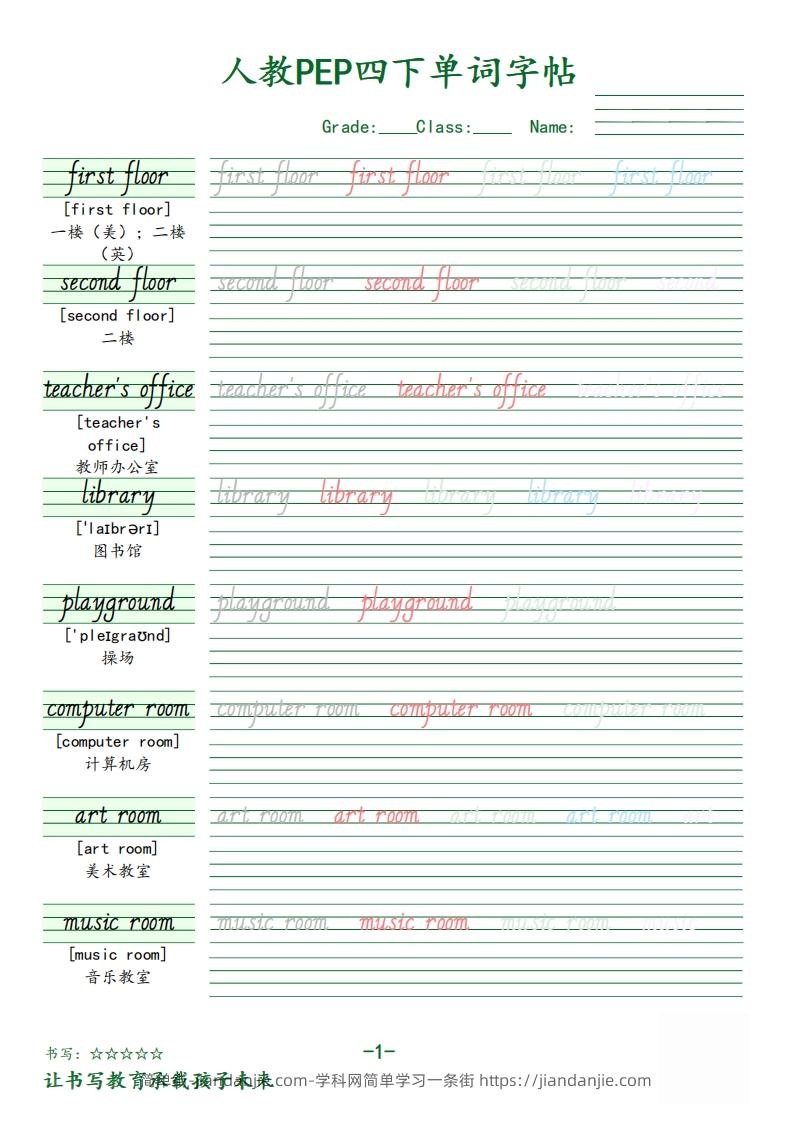 人教PEP四下单词字帖
Grade:____Class:____ Name:
first floor first floor first floor first floor first floor
[first floor]
一楼（美）；二楼
（英）
second floor second floor second floor second floor second
[second floor]
二楼
teacher's office teacher's office teacher's office teacher's office
[teacher's
office]
教师办公室
library library library library library library
['laɪbrərɪ]
图书馆
playground playground playground playground
['pleɪgraʊnd]
操场
computer room computer room computer room computer room
[computer room]
计算机房
art room art room art room art room art room art
[art room]
美术教室
music room music room music room music room music
[music room]
音乐教室
书写：☆☆☆☆☆
-1-
让书写教育承载孩子未来
简单街-jiandanjie.com-学科网简单学习一条街 https://jiandanjie.com